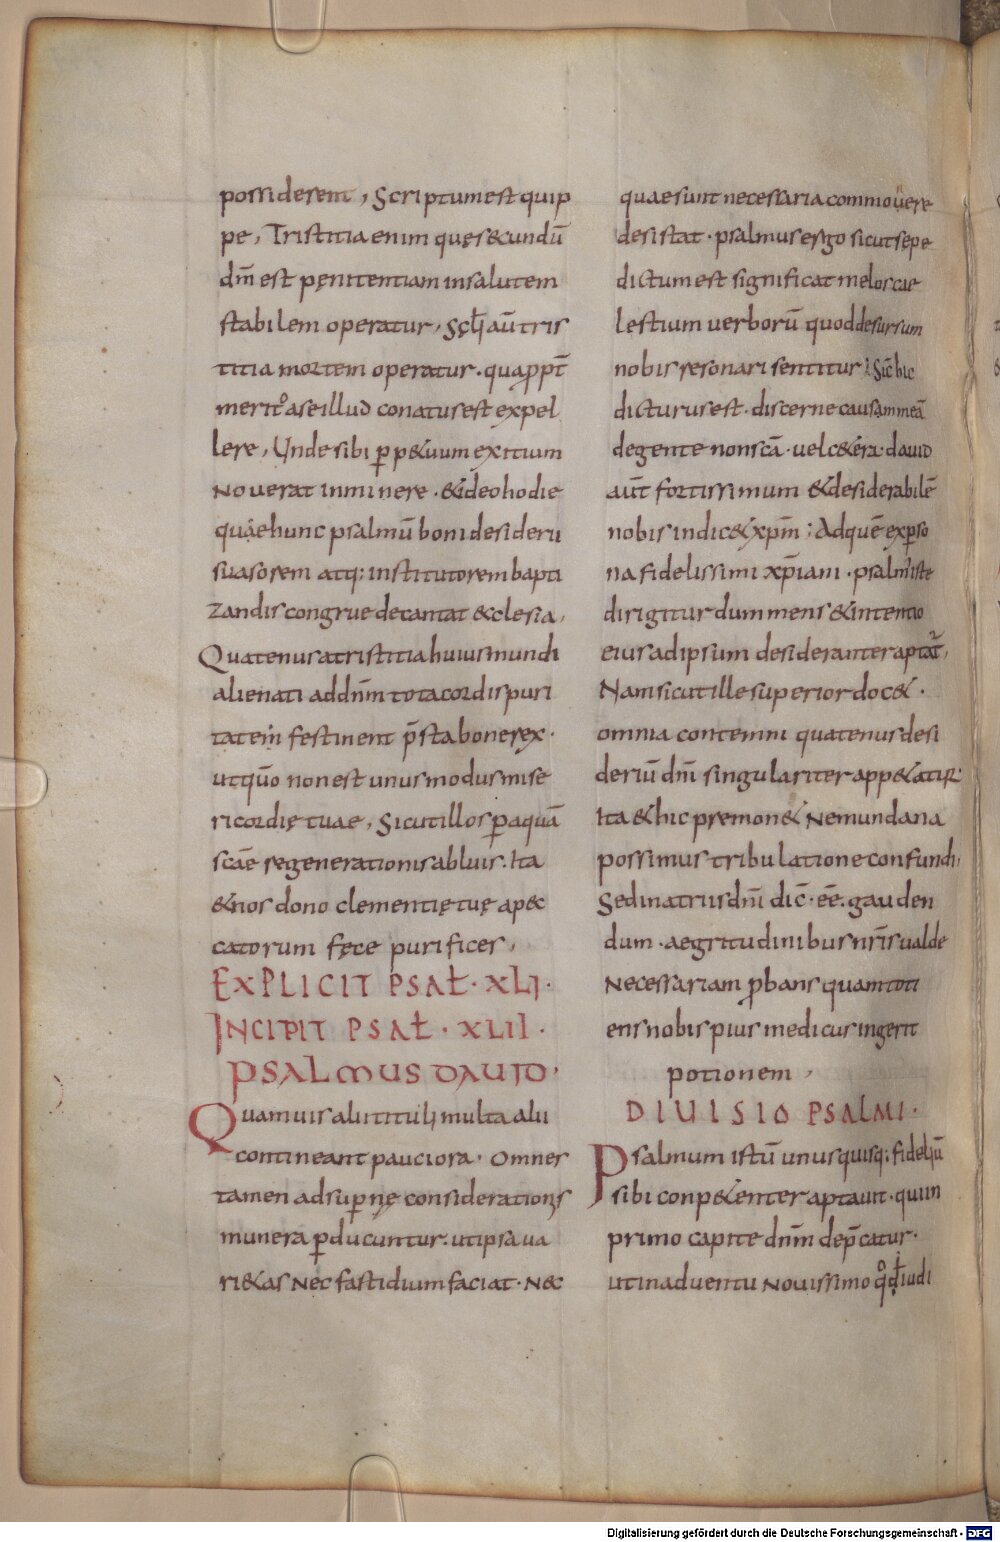 possiderent, Scriptum est quip
pe, Tristitia enim quę secundū
dm̄ est pęnitentiam in salutem
stabilem operatur, Sęcłi aut̄ tris
titia mortem operatur. quapropt̄
merito a se illud conatus est expel
lere, Unde sibi ꝑp&uum exitium
noverat inminere. & ideo hodie
quae hunc psalmū boni desiderii
suasorem atq: institutorem bapti
zandis congrue decantat &clesia,
Quatenus a tristitia huius mundi
alienati ad dnm̄ tota cordis puri
tatem festinent p̄sta bone rex.
ut quo non est unus modus mise
ricordię tuae, Sicut illos ꝑ aquā
scāe regenerationis abluis. Ita
& nos dono clementię tuę a pec
catorum fęce purifices,
EXPLICIT PSAŁ. XLI.
INCIPIT PSAŁ. XLII.
PSALMUS DAUID.
Quamuis alii tituli multa alii
contineant pauciora. Omnes
tamen ad supernę considerationis
munera ꝑducuntur. ut ipsa ua
ri&as nec fastidium faciat. Nec
quae sunt necessaria commouere
desistat. psalmus ergo sicut sepe
dictum est significat melos cae
lestium uerborū quod desursum
nobis resonari sentitur; Sic̄ hic
dicturus est. discerne causam meā
de gente non scā. uel c&era. dauid
aut̄ fortissimum & desiderabilē
nobis indic& xpm̄; Ad quē ex perso
na fidelissimi xp̄iani. psalm' iste
dirigitur dum mens & intentio
eius ad ipsum desideranter aptat̄,
Nam sicut ille superior doc&.
omnia contemni quatenus desi
deriū dnī singulariter app&atur
Ita & hic premon& Ne mundana
possimus tribulatione confundi,
Sed in atriis dnī dic̄. eē. gauden
dum. aegritudinibus nris̄ ualde
necessariam ꝓbans quam toti
ens nobis pius medicus ingerit
potionem,
DIUISIO PSALMI.
Psalmum istū unusquisq: fideliū
sibi conp&enter aptauit. qui in
primo capite dnm̄ dep̄catur.
ut in aduentu nouissimo qđ iudi
Digitalisierung gefördert durch die Deutsche Forschungsgemeinschaft - DFG